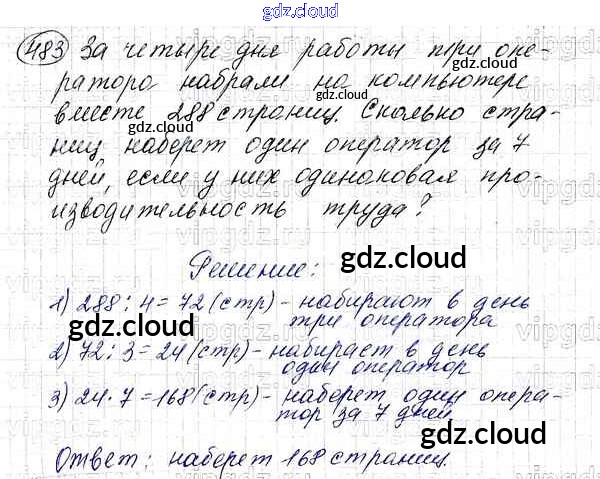 gdz.cloud
483 За четыре дня работы три опе-
ратора набрали на компьютере
вместе 288 страниц. Сколько стра-
ниц наберет один оператор за 7
дней, если у них одинаковая про-
изводительность труда?
gdz.cloud
Решение:
1) 288 : 4 = 72 (стр) - набирают в день
три оператора
gdz.cloud
2) 72 : 3 = 24 (стр) - набирает в день
один оператор
3) 24 · 7 = 168 (стр) - наберет один опера-
тор за 7 дней
gdz.cloud
Ответ: наберет 168 страниц.